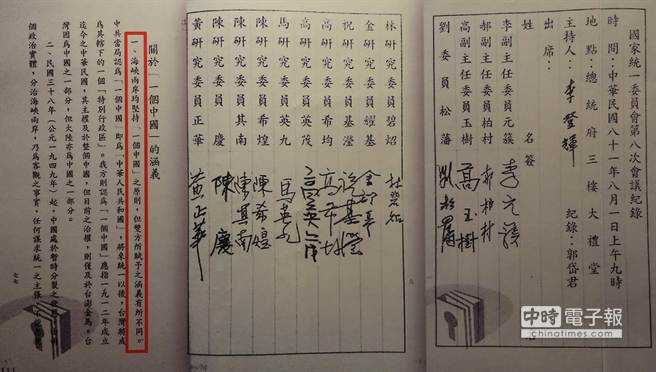 國家統一委員會第八次會議紀錄
時間：中華民國八十一年八月一日上午九時
地點：總統府三樓大禮堂
主持人：李登輝
紀錄：郭岱君
出席：
姓名 簽名
李副主任委員元簇 李元簇
郝副主任委員柏村 郝柏村
高副主任委員玉樹 高玉樹
劉委員松藩 劉松藩
林研究委員碧炤 林碧炤
金研究委員耀基 金耀基
祝研究委員基瀅 祝基瀅
高研究委員
高研究委員英茂 高英茂
馬研究委員英九 馬英九
陳研究委員希煌 陳希煌
陳研究委員其南 陳其南
陳研究委員慶 陳慶
黃研究委員正華 黃正華
關於「一個中國」的涵義
一、海峽兩岸均堅持「一個中國」之原則，但雙方所賦予之涵義有所不同。
中共當局認為「一個中國」即為「中華人民共和國」，將來統一以後，台灣將成
為其轄下的一個「特別行政區」。我方則認為「一個中國」應指一九一二年成立
迄今之中華民國，其主權及於整個中國，但目前之治權，則僅及於台澎金馬。台
灣固為中國之一部分，但大陸亦為中國之一部分。
二、民國三十八年（公元一九四九年）起，中國處於暫時分裂之
個政治實體，分治海峽兩岸，乃為客觀之事實，任何謀求統一之主張
七七
中時電子報
chinatimes.com